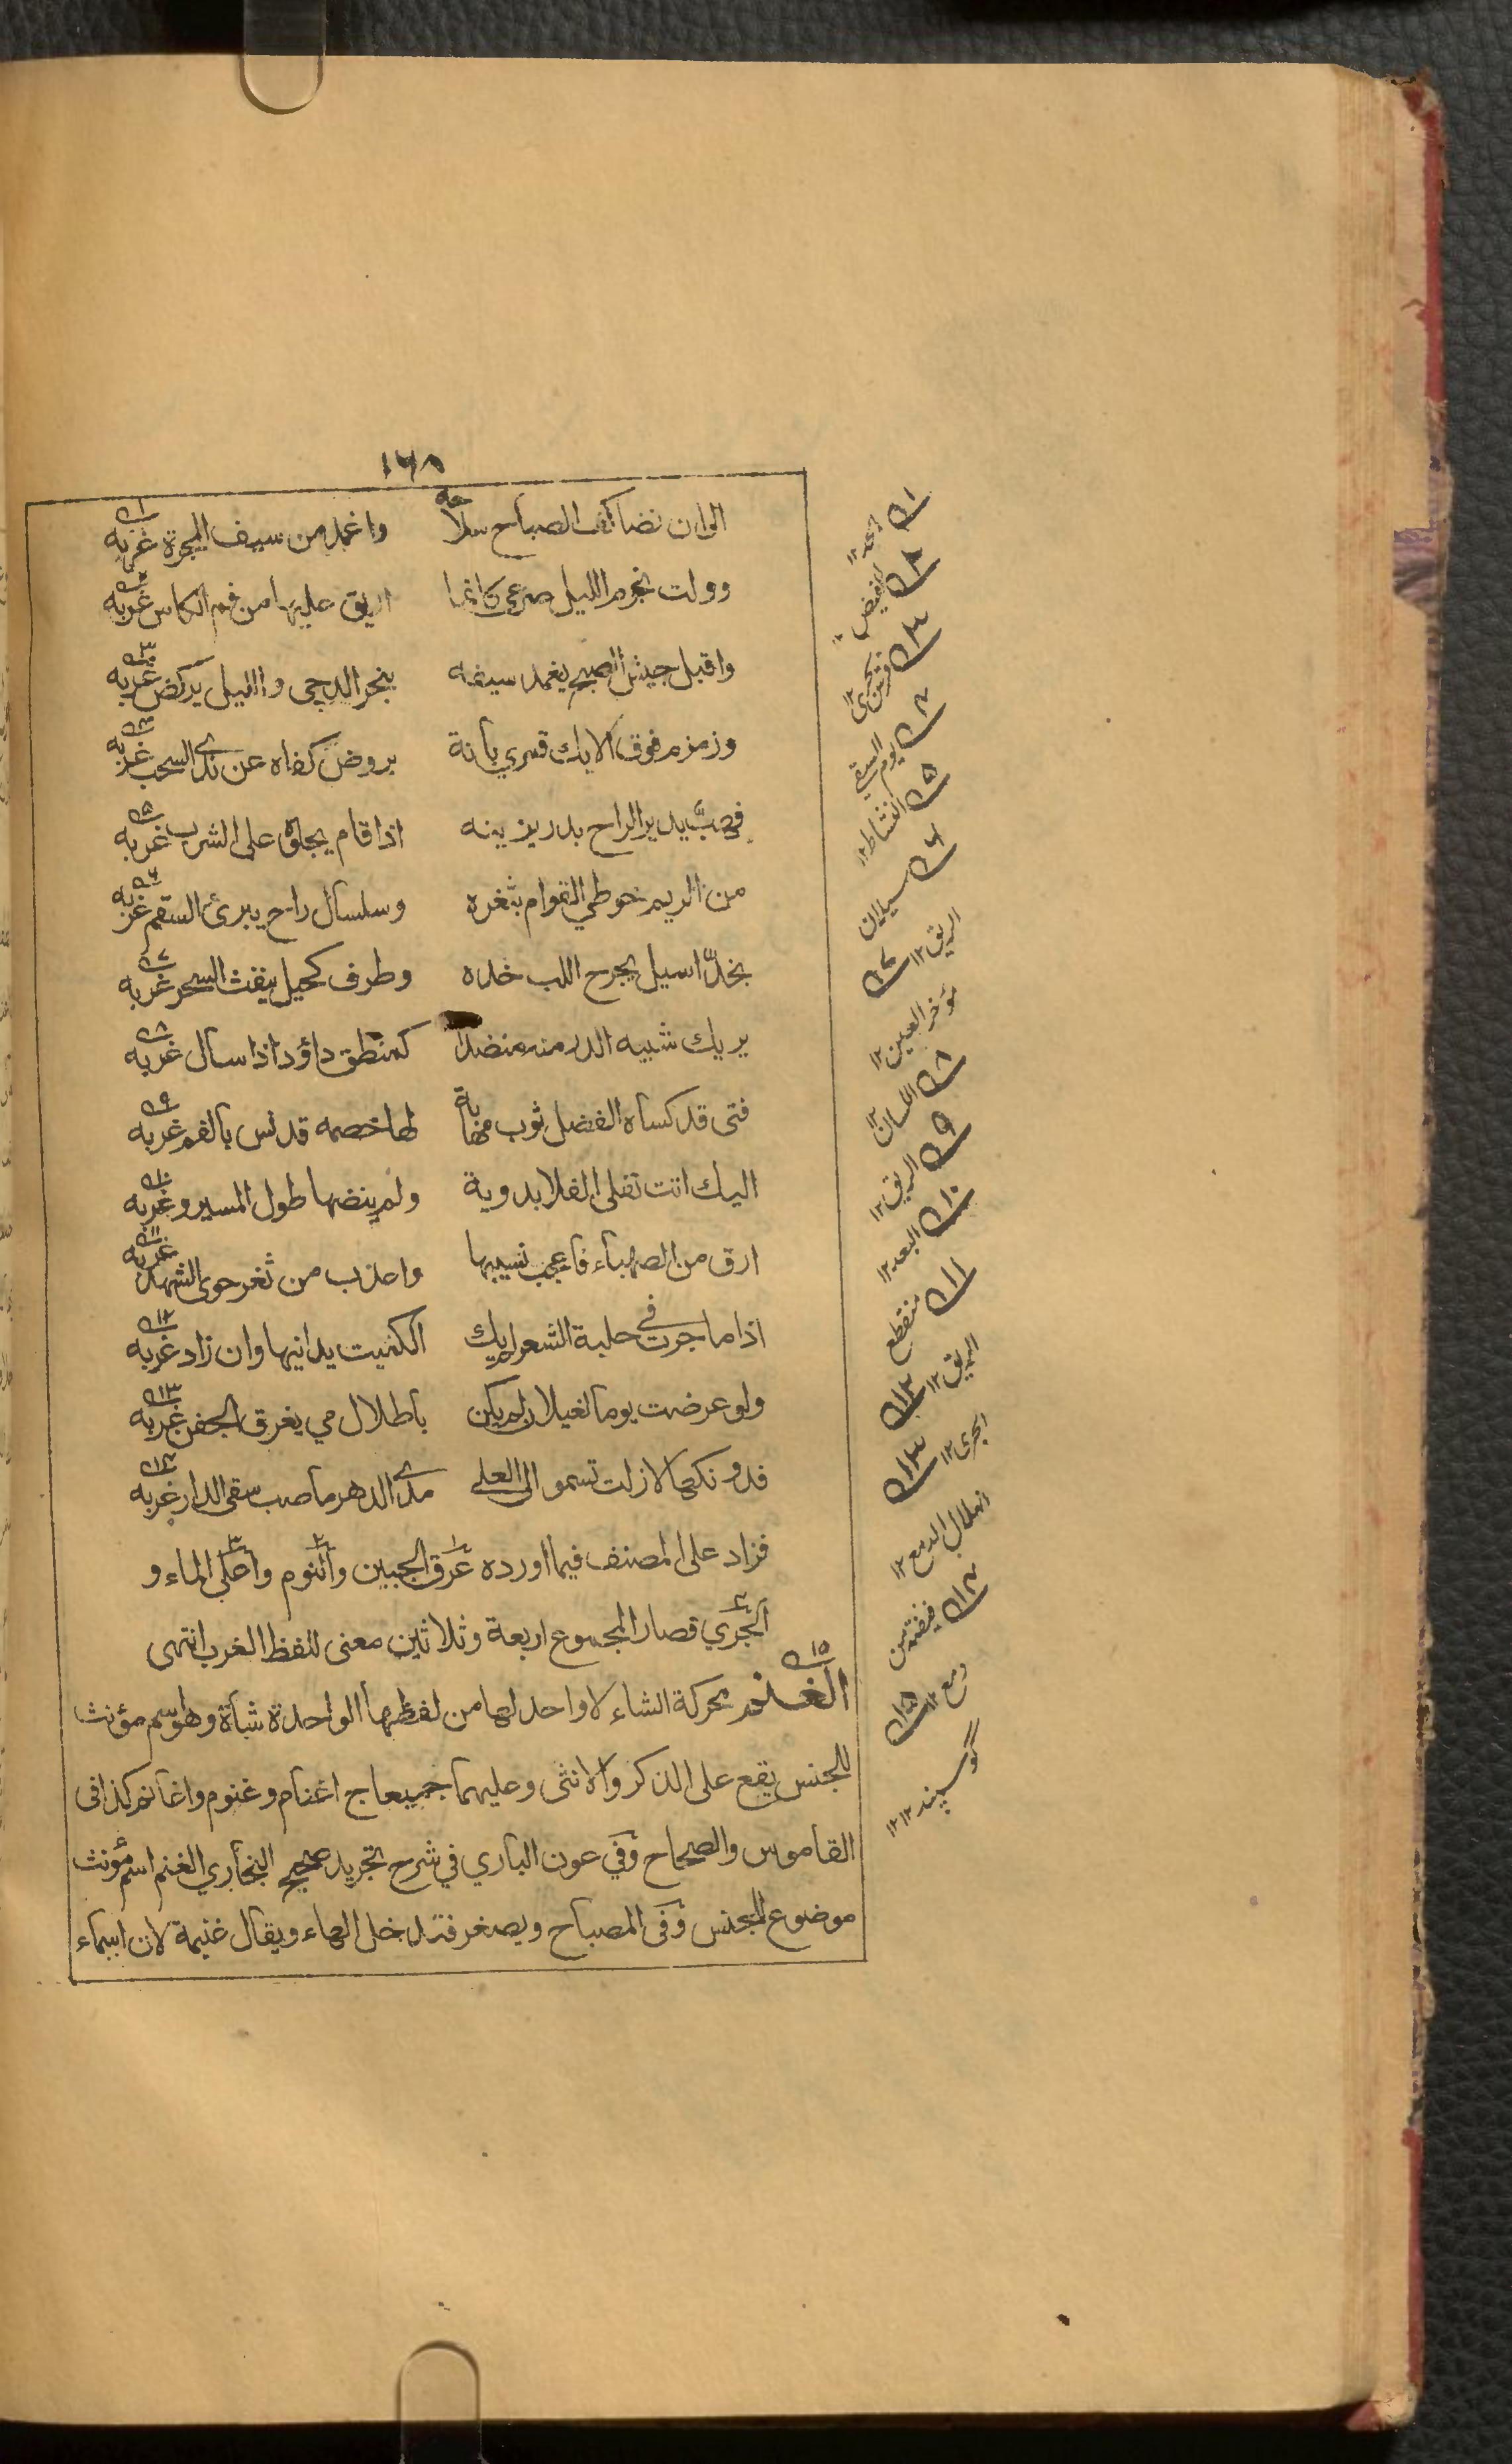 ١٦٨
الى ان نضا كف الصباح سلاحه واغمد من سيف المجرة غربه
وولت نجوم الليل صرعى كانما اريق عليها من فم الكاس غربه
واقبل جيش الصبح يغمد سيفه بنحر الدجى والليل يركض غربه
وزمزم فوق الايك قمري بانة بروض كفاه عن ندى السحب غربه
فهبّ يدير الراح بدر يزينه اذا قام يجلوه على الشرب غربه
من الريم خوطي القوام بثغره وسلسال راح يبرئ السقم غربه
بخدّ اسيل يجرح اللب خده وطرف كحيل ينفث السحر غربه
يريك شبيه الدر منه منضدا كمنطق داؤد اذا سال غربه
فتى قد كساه الفضل ثوب مهابة لها خصمه قد نس بالفم غربه
اليك اتت تفلى الفلا بدوية ولم ينضها طول المسير وغربه
ارق من الصهباء فاعجب نسيبها واعذب من ثغر حوى الشهد غربه
اذا ما جرت في حلبة الشعر لم يك الكميت يدانيها وان زاد غربه
ولو عرضت يوما لغيلان لم يكن باطلال مي يغرق الجفن غربه
فدونكها لا زلت تسمو الى العلى مدى الدهر ما صب سقى الدار غربه
فزاد على المصنف فيما اورده عَرَق الجبين والنوم واعلى الماء و
الجَرْي فصار المجموع اربعة وثلاثين معنى للفظ الغرب انتهى
الغنم محركة الشاء لا واحد لها من لفظها الواحدة شاة وهو اسم مؤنث
للجنس يقع على الذكر والانثى وعليهما جميعا ج اغنام وغنوم واغانم كذا فى
القاموس والصحاح وفي عون الباري في شرح تجريد صحيح البخاري الغنم اسم مؤنث
موضوع للجنس وفى المصباح ويصغر فتدخل الهاء ويقال غنيمة لان اسماء
١
٢
٣
٤
يوم السقي
٥ النشاط ١٢
٦ سيلان
الريق ١٢
٧
مؤخر العين ١٢
٨ اللسان ١٢
٩ الريق ١٢
١٠ البعد ١٢
١١ منقطع
الريق ١٢
١٢
الجرى ١٢
١٣
انهلال الدمع ١٢
١٤
دمع ١٢
١٥
گوسپند ١٢